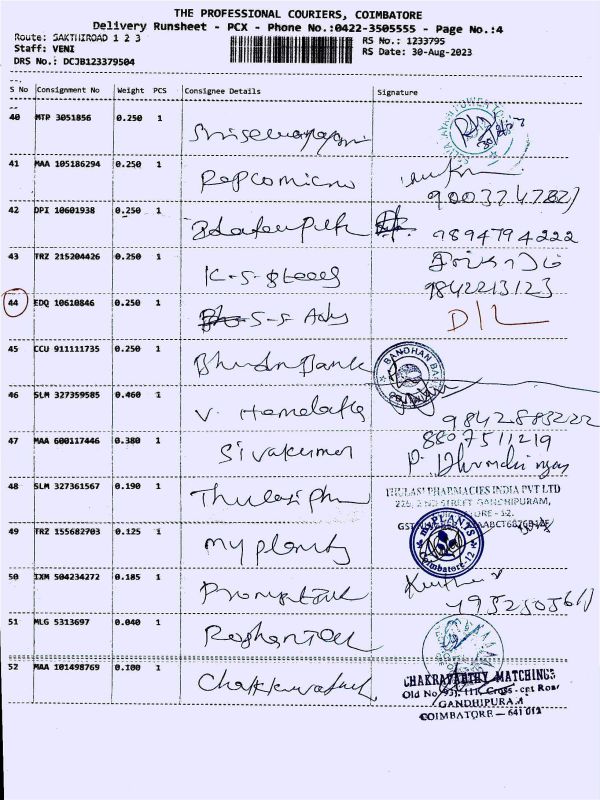 THE PROFESSIONAL COURIERS, COIMBATORE
Delivery Runsheet - PCX - Phone No.:0422-3505555 - Page No.:4
Route: SAKTHIROAD 1 2 3
RS No.: 1233795
Staff: VENI
RS Date: 30-Aug-2023
DRS No.: DCJB123379504
S No Consignment No Weight PCS Consignee Details Signature
40 MTP 3051856 0.250 1
41 MAA 105186294 0.250 1 Repcomicro
42 DPI 10601938 0.250 1
9894794222
43 TRZ 215204426 0.250 1 K-S-Steels
9842213123
44 EDQ 10610846 0.250 1 S-S Ads D/L
45 CCU 911111735 0.250 1 Bhudn Bank
BANDHAN BANK
46 SLM 327359585 0.460 1 V. Hemalatha
9842883222
47 MAA 600117446 0.380 1 Sivakumar
8807511219
48 SLM 327361567 0.190 1 Thulasi Phm
THULASI PHARMACIES INDIA PVT LTD
2ND STREET GANDHIPURAM,
49 TRZ 155682703 0.125 1 my plants
myPLANTS
Coimbatore-12
50 IXM 504234272 0.185 1
51 MLG 5313697 0.040 1
52 MAA 101498769 0.100 1
CHAKRAVARTHY MATCHINGS
GANDHIPURAM
COIMBATORE - 641 012